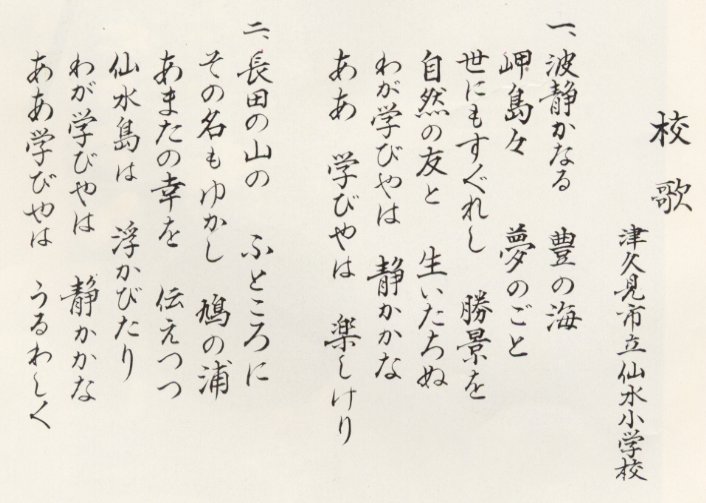 校歌
津久見市立仙水小学校
一、波静かなる　豊の海
岬島々　夢のごと
世にもすぐれし　勝景を
自然の友と　生いたちぬ
わが学びやは　静かかな
ああ　学びやは　楽しけり
二、長田の山の　ふところに
その名もゆかし　鳩の浦
あまたの幸を　伝えつつ
仙水島は　浮かびたり
わが学びやは　静かかな
ああ学びやは　うるわしく